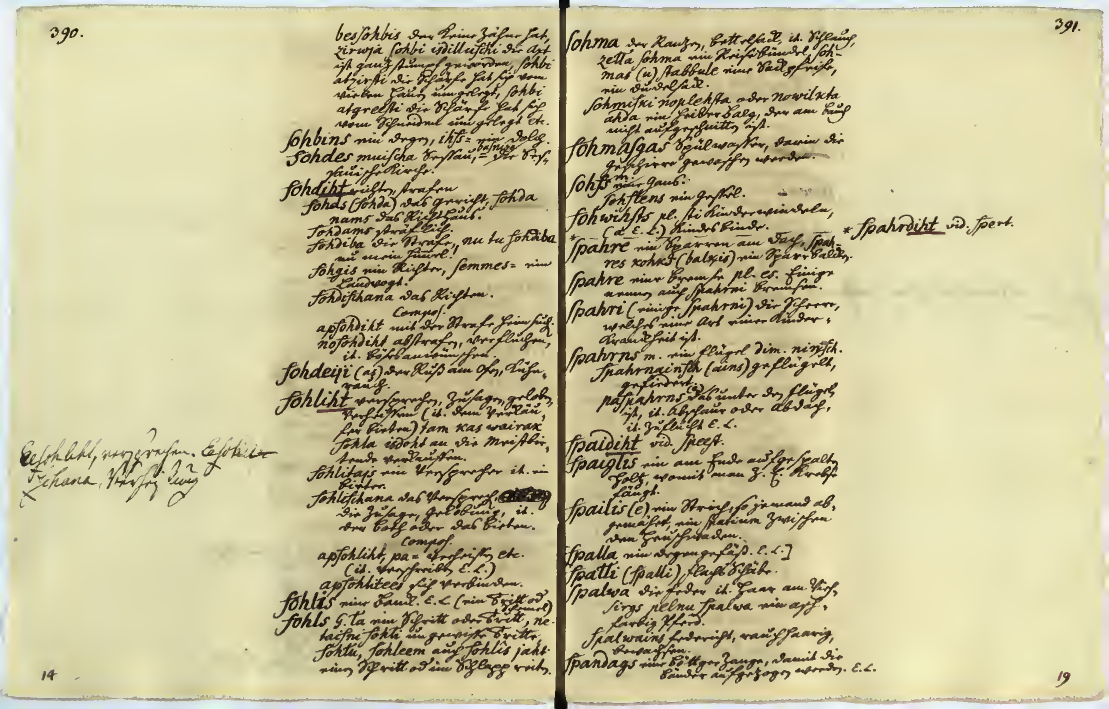 390.
besſohbis der keine Zähne hat,
zirwja ſohbi isdilluſchi die Axt
iſt ganz ſtumpf geworden, ſohbi
atzirſti die Schärfe hat ſich vom
vielen Hauen umgelegt, ſohbi
atgreeſti die Schärfe hat ſich
vom Schneiden umgelegt etc.
ſohbins ein Degen, ihſs= ein Dolch.
ſohdes muiſcha Seſſau, = baſniza die Seſ-
ſauiſche Kirche.
ſohdiht richten, ſtrafen
ſohds (ſohda) das Gericht, ſohda
nams das Richthaus.
ſohdams ſträflich.
ſohdiba die Strafe, nu tu ſohdiba
nu mein Himmel!
ſohgis ein Richter, ſemmes= ein
Landvogt.
ſohdiſchana das Richten.
Compos.
apſohdiht mit der Strafe heimſuch.
noſohdiht abſtrafen, verfluchen,
it. böſes anwünſchen
ſohdeiji (aſ) der Ruß am Ofen, Kühn-
rauch.
ſohliht verſprechen, zuſagen, geloben
verheiſſen (it. dem Verkäu-
fer bieten) tam kas wairak
ſohla isdoht an die Meiſtbie-
tende verkauffen.
ſohlitais ein Verſprecher it. ein
Bieter.
ſohliſchana das Verſprechen
die Zuſage, Gelobung, it.
der Both oder das Bieten.
Compos.
apſohliht, pa= verheiſſen etc.
(it. verſchreiben E. L.)
apſohlitees ſich verbinden.
ſohlis eine Bank. E. L. (ein Tritt od
Schemel)
ſohls G. ļa ein Schritt oder Tritt, ne
taiſni ſohli ungewiſſe Tritte.
ſohlu, ſohleem auch ſohlis jaht
einen Schritt od im Schlepp reiten.
14
391.
ſohma der Ranzen, Bettelſack, it. Schlauch,
zetta ſohma ein Reiſebündel, ſoh-
mas (u) ſtabbule eine Sackpfeife,
ein Dudelſack.
ſohmiſki noplehſta oder nowilkta
ahda ein Heiler Balg, der am Bauch
nicht aufgeſchnitten iſt.
ſohmaſgas Spülwaſſer, darin die
Geſchirre gewaſchen werden.
ſohſs eine Gans.
ſohſlens ein Geſſel.
ſohwihſts pl. ſti Kinderwindeln,
(a E. L.) Kindesbinde.
* ſpahre ein Sparren am Dach, ſpah-
res kohks (balkis) ein Sparrbalken.
* ſpahrdiht vid. ſpert.
ſpahre eine Bremſe pl. es. Einige
nennen auch ſpahrni Bremſen.
ſpahri (einige ſpahrni) die Scheere,
welches eine Art einer Kinder-
Krankheit iſt.
ſpahrns m. ein Flügel dim. ninſch.
ſpahrnainſch (ains) geflügelt,
gefiedert.
paſpahrns das unter den Flügel
iſt, it. Abſchaur oder Abdach,
it. Zuflucht E. L.
ſpaidiht vid. ſpeeſt.
ſpaiglis ein am Ende aufgeſpalt.
Holz, womit man z. E. Krebſe
fängt.
ſpailis (e) ein Strich, ſo jemand ab-
gemähet, ein ſpatium zwiſchen
den Heuſchwaden.
[ſpalla ein Degengefäß. E. L.]
ſpalli (ſpaļļi) Flachs Schäbe.
ſpalwa die Feder it. Haar am Vieh,
ſirgs pelnu ſpalwa ein aſch-
farbig Pferd.
ſpalwains federicht, rauchhaarig,
bewachſen.
ſpandags eine Böttger Zange, damit die
Bänder aufgezogen werden. E. L.
19